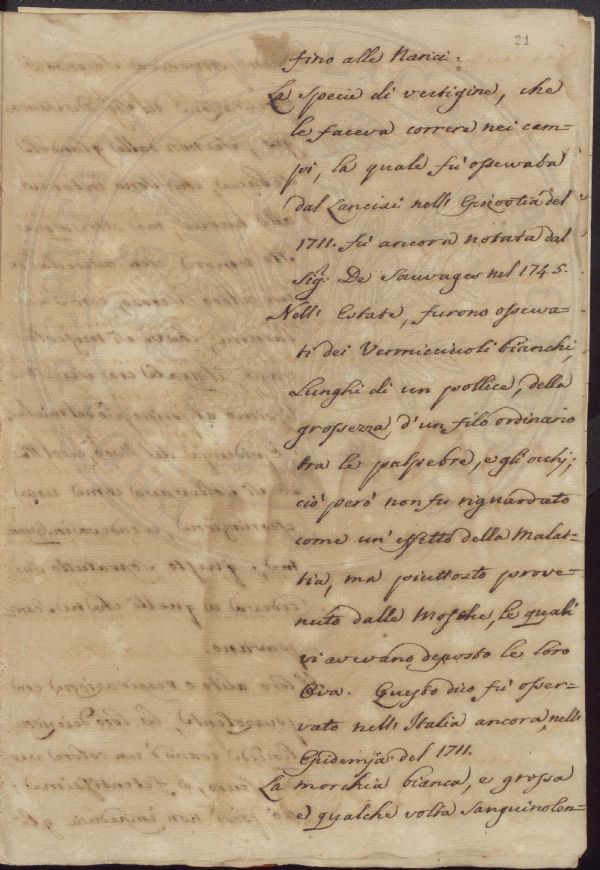 21
fino alle Narici.
La specie di vertigine, che
le faceva correre nei cam-
pi, la quale fù osservata
dal Lancisi nell' Epizootia del
1711. fù ancora notata dal
Sig.r De Sauvages nel 1745.
Nell' Estate, furono osserva-
ti dei Vermiccicoli bianchi,
Lunghi di un pollice, della
grossezza d'un filo ordinario
tra le palpebre, e gl'occhj;
ciò però non fu riguardato
come un' effetto della Malat-
tia, ma piuttosto prove-
nuto dalle Mosche, le quali
vi avevano deposto le loro
Ova. Questo dico fù osser-
vato nell' Italia ancora, nell'
Epidemja del 1711.
La morchia bianca, e grossa
e qualche volta sanguinolen-